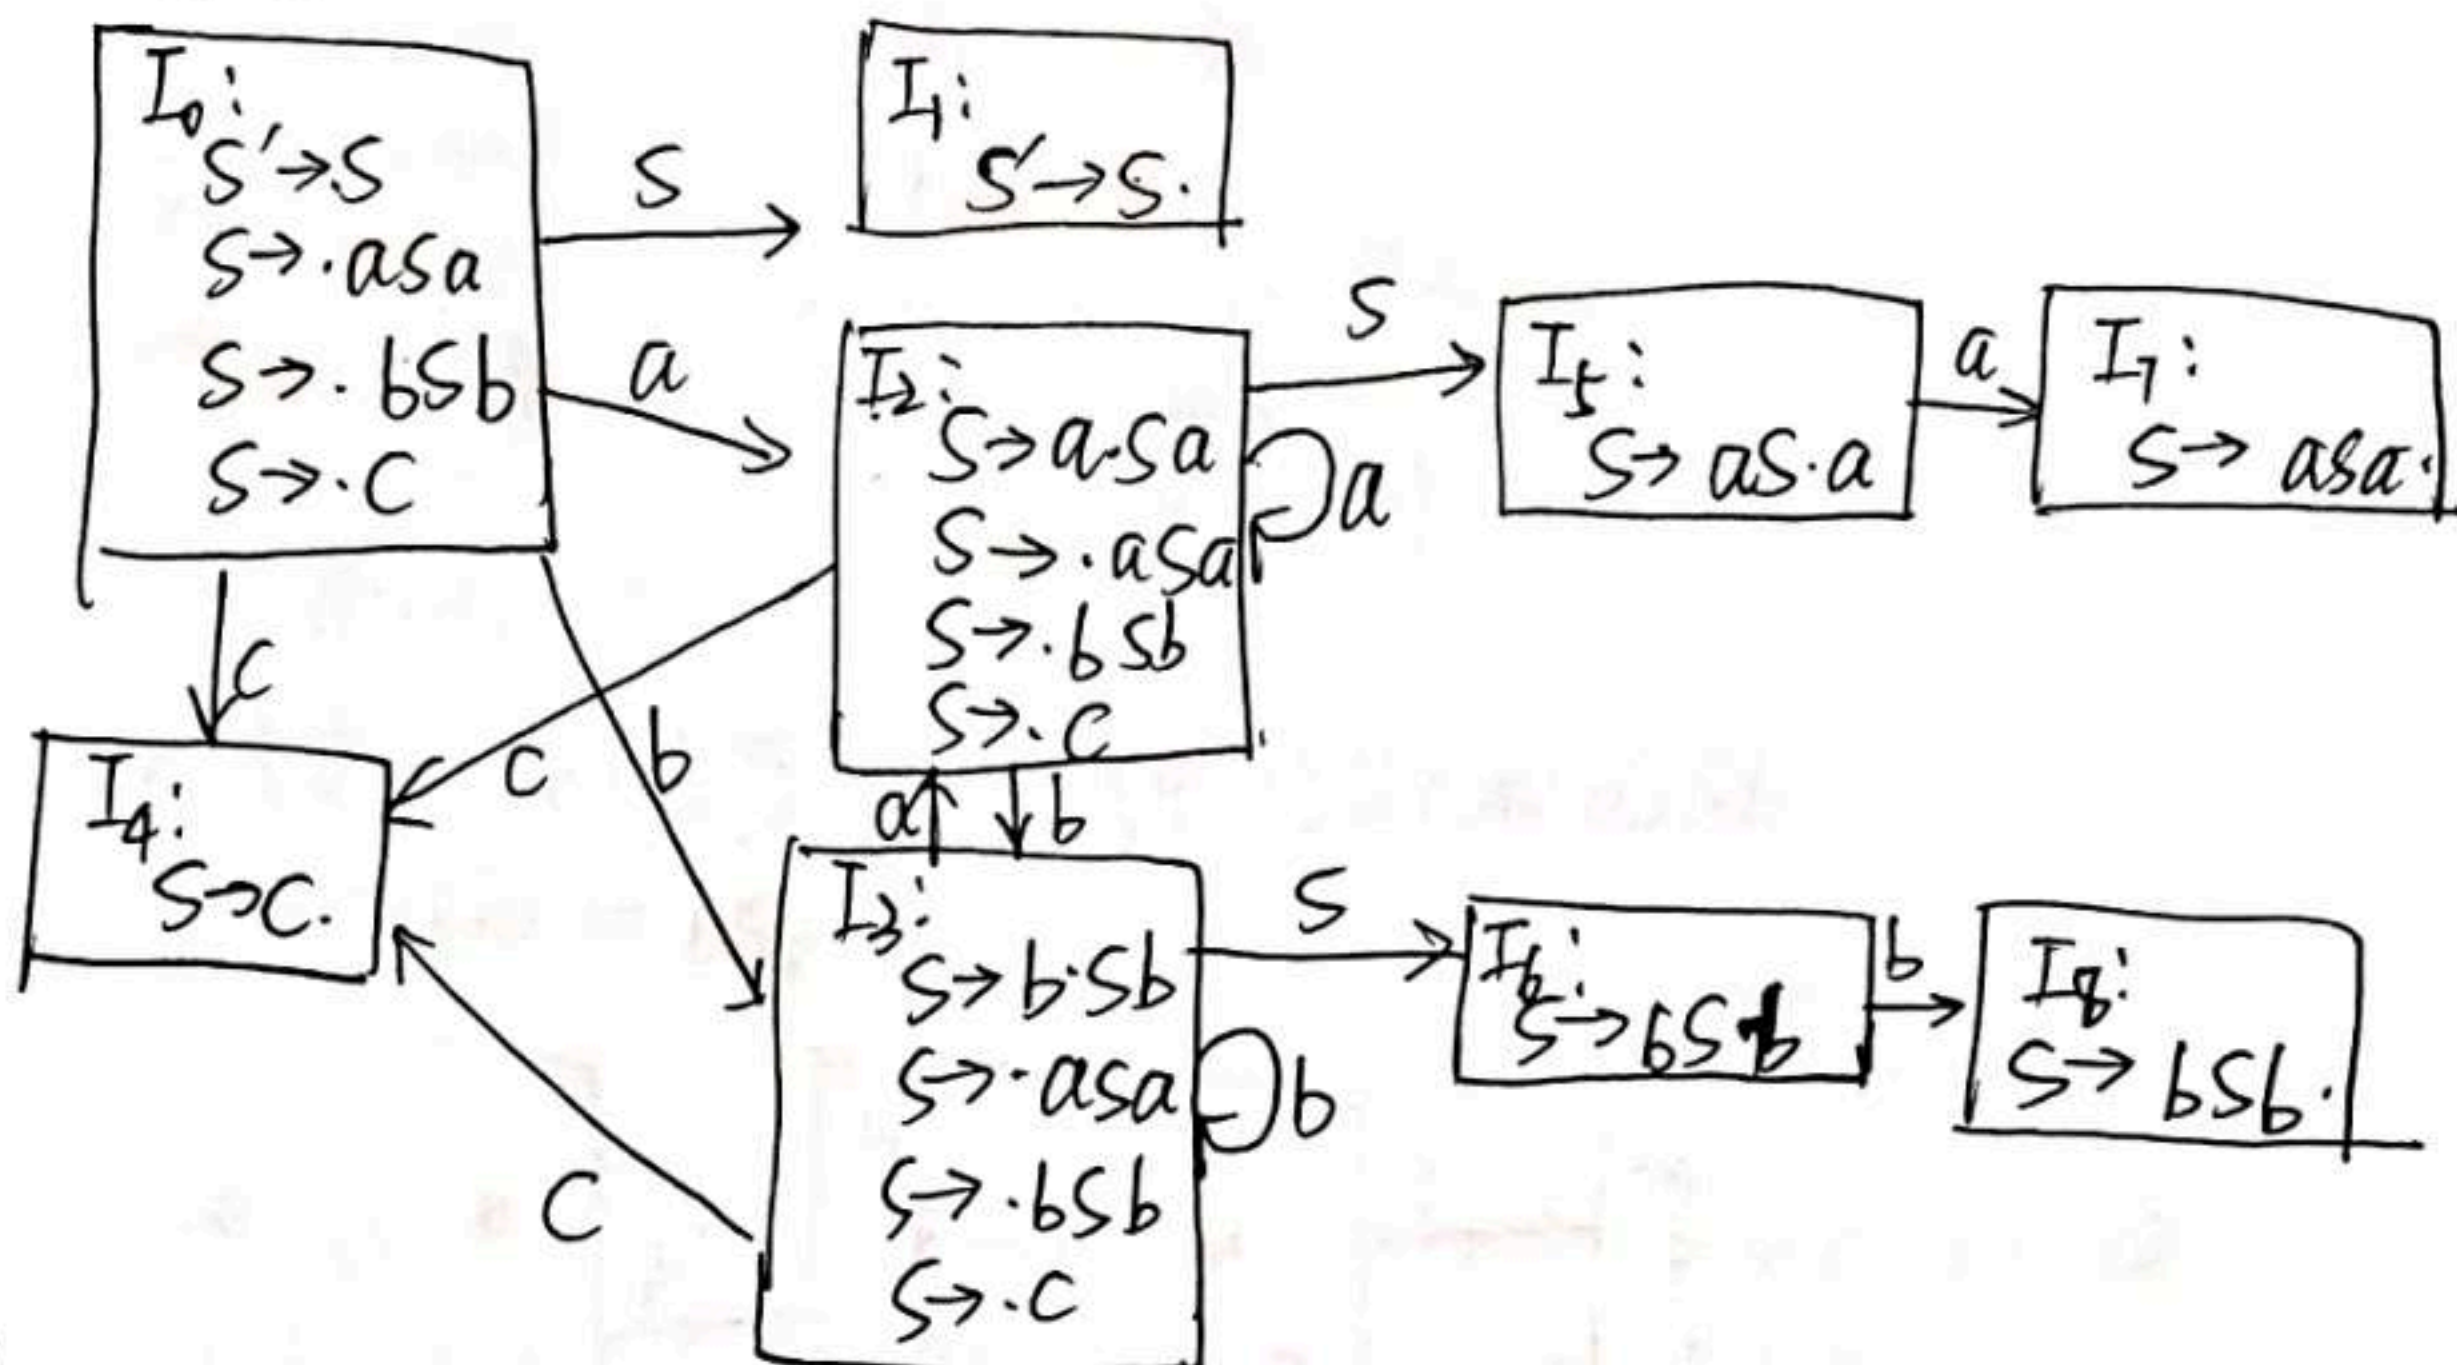 I0:
S'→.S
S→.aSa
S→.bSb
S→.c
S
a
c
b
I1:
S'→S.
I2:
S→a.Sa
S→.aSa
S→.bSb
S→.c
S
a
c
a
b
I5:
S→aS.a
a
I7:
S→aSa.
I4:
S→c.
I3:
S→b.Sb
S→.aSa
S→.bSb
S→.c
S
b
c
I6:
S→bS.b
b
I8:
S→bSb.